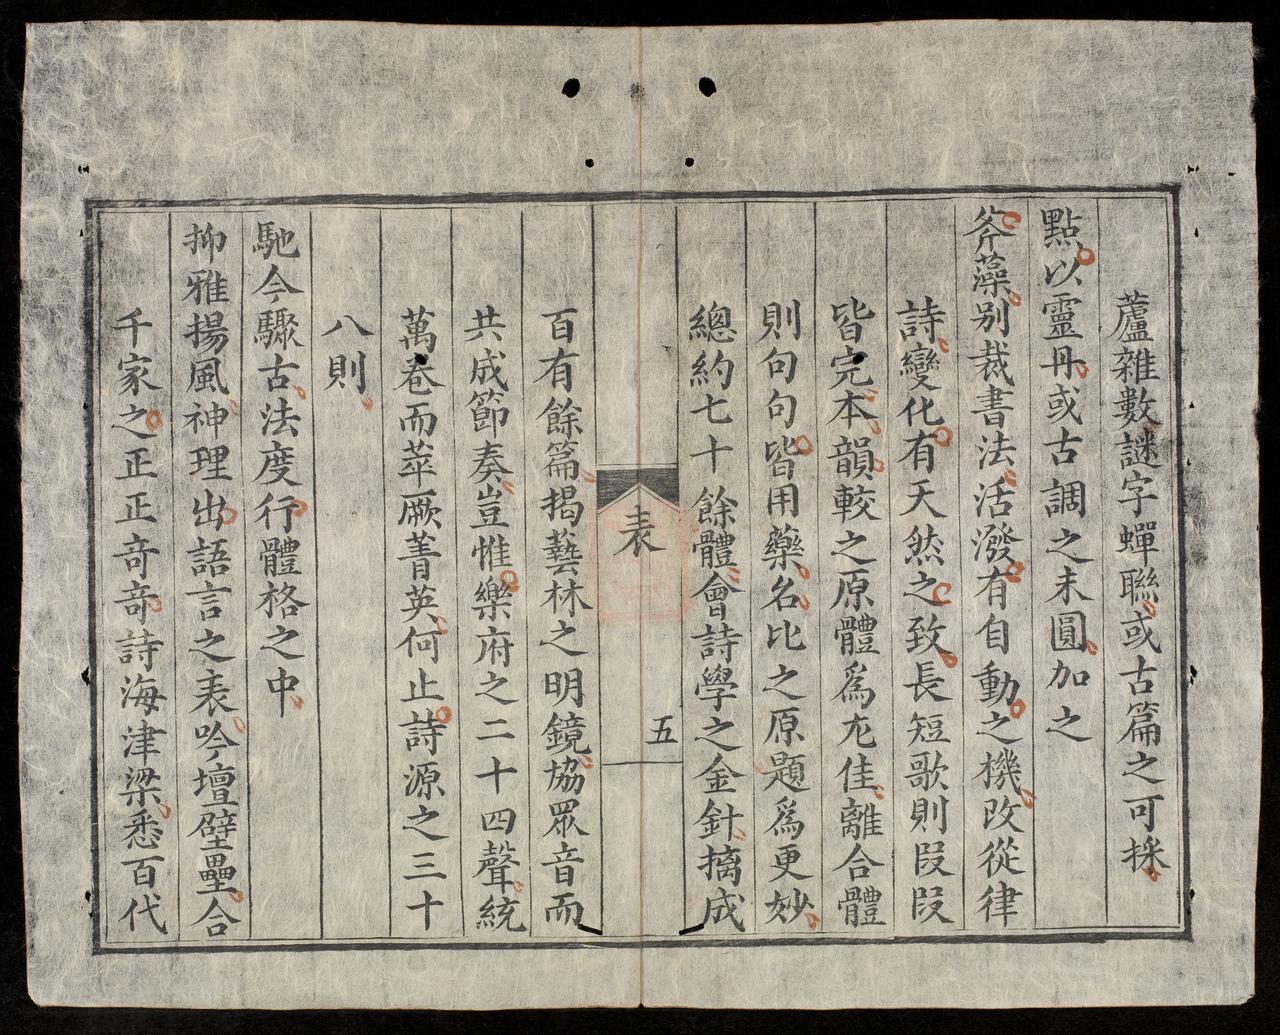 蘆雜數謎字蟬聯或古篇之可採
點以靈丹或古調之未圓加之
斧藻別裁書法活潑有自動之機改從律
詩變化有天然之致長短歌則段段
皆完本韻較之原體爲尤佳離合體
則句句皆用藥名比之原題爲更妙
總約七十餘體會詩學之金針摛成
表
五
百有餘篇揭藝林之明鏡協眾音而
共成節奏豈惟樂府之二十四聲統
萬卷而萃厥菁英何止詩源之三十
八則
馳今驟古法度行體格之中
抑雅揚風神理出語言之表吟壇壁壘合
千家之正正奇奇詩海津梁悉百代